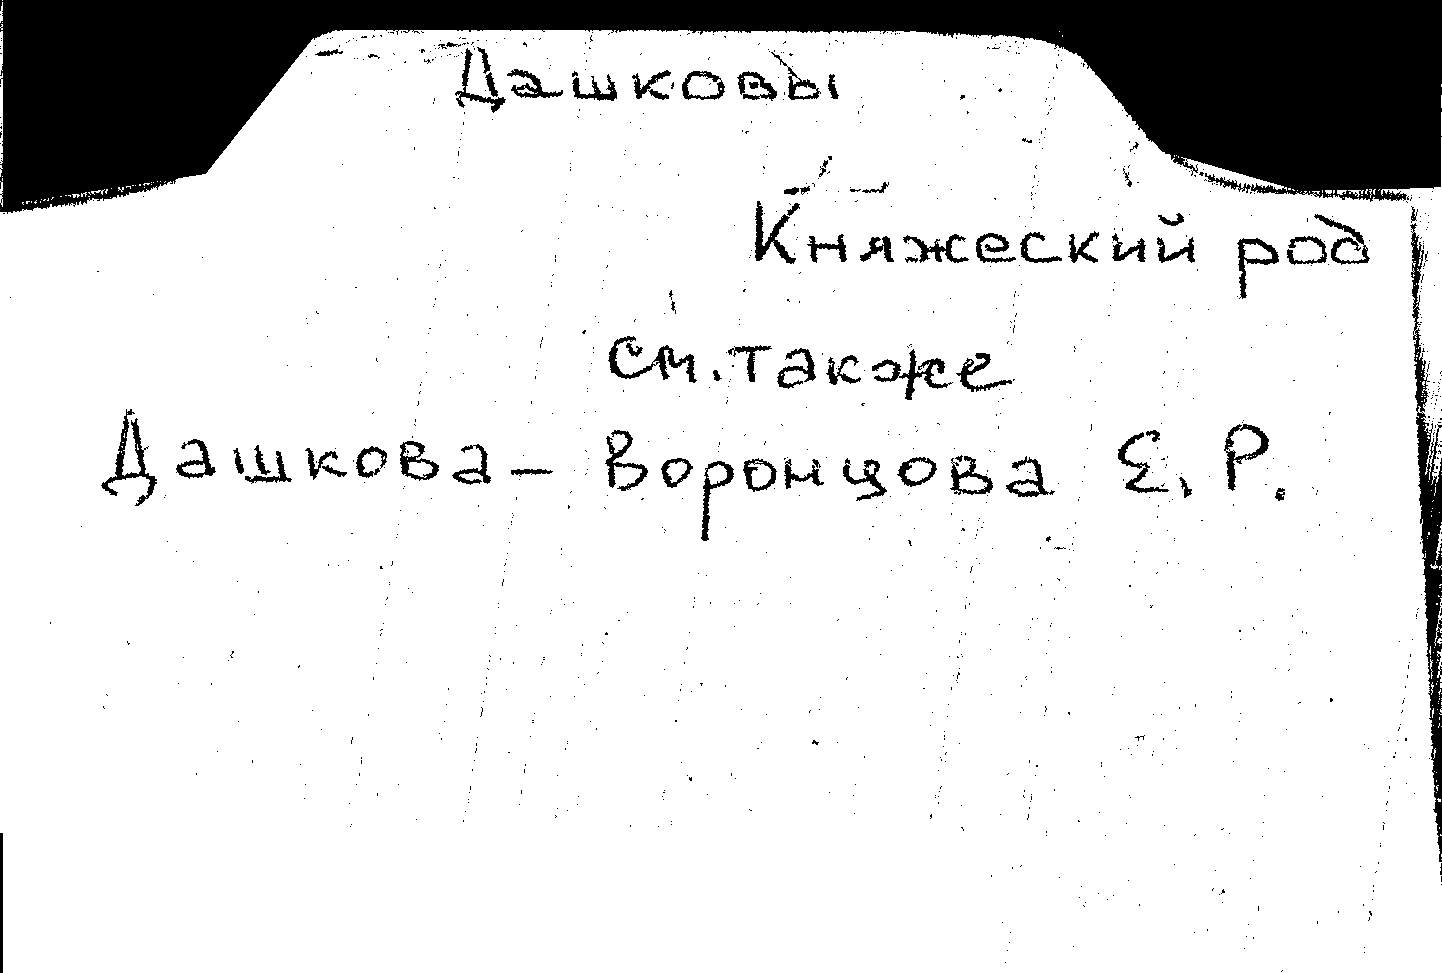 Дашковы
Княжеский род
см. также
Дашкова - Воронцова Е. Р.